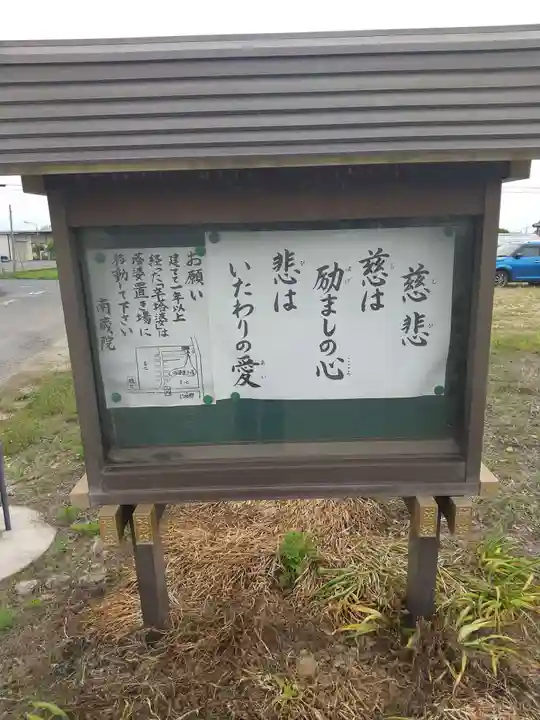 慈悲
慈は
励ましの心
悲は
いたわりの愛
お願い
建てて一年以上
経った「卒塔婆」は
塔婆置き場に
移動して下さい
南蔵院